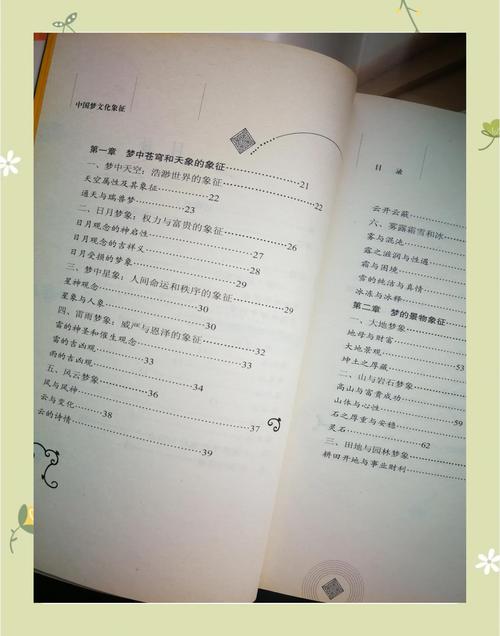 中国梦文化象征
第一章 梦中苍穹和天象的象征……21
一、梦中天空：浩渺世界的象征……22
天空属性及其象征……22
通天与瑞兽梦……23
二、日月梦象：权力与富贵的象征……26
日月观念的神启性……27
日月观念的吉祥义……28
日月受损的梦象……29
三、梦中星象：人间命运和秩序的象征……29
星神观念……30
星象与人象……30
四、雷雨梦象：威严与恩泽的象征……32
雷的神圣和催生观念……33
雷的吉凶观……34
雨的吉凶观……36
五、风云梦象……37
风与风神……38
云与变化
云的诗情……39
目录
云开云蔽
六、雾露霜雪和冰
雾与混沌
露之滋润与性通
霜与困境
雪的纯洁与真情
冰冻与冰释
第二章 梦的景物象征
一、大地梦象
地母与财富
大地景观
坤土之厚藏
二、山与岩石梦象
高山与富贵成功
山体与心性……59
石之厚重与安稳
灵石……62
三、田地与园林梦象
耕田开地与事业财利